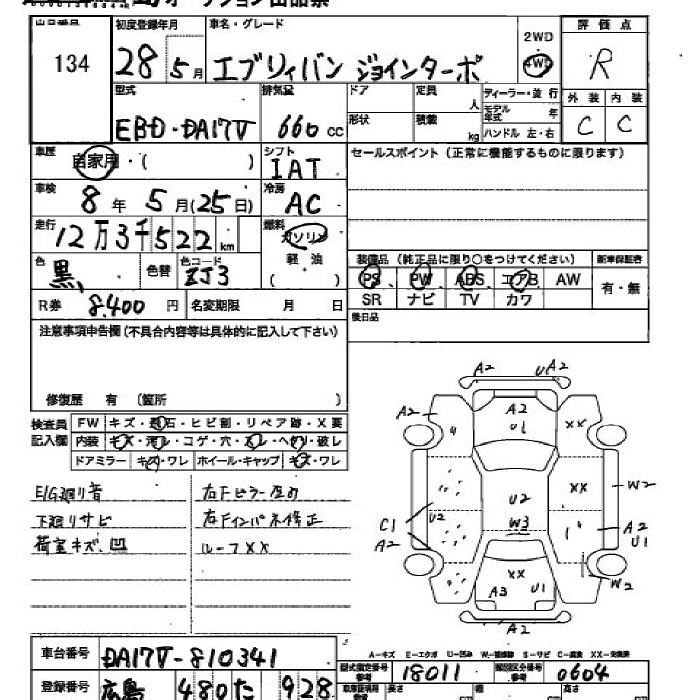 出品番号 初度登録年月 車名・グレード 2WD 評価点
134 28 5月 エブリィバン ジョインターボ 4WD R
型式 排気量 ドア 定員 人 ディーラー・並行 外装 内装
EBD-DA17V 660 CC 形状 積載 kg モデル年式 年 ハンドル 左・右 C C
車歴 自家用・( ) シフト IAT セールスポイント (正常に機能するものに限ります)
車検 8年 5月(25日) 冷房 AC
走行 12万3千522km 燃料 ガソリン 軽油 ( )
色 黒 色替 色コード ZJ3
装備品 (純正品に限り○をつけてください) 新車保証書
PS PW ABS エアB AW 有・無
SR ナビ TV カワ
R券 8,400円 名変期限 月 日 後日品
注意事項申告欄(不具合内容等は具体的に記入して下さい)
修復歴 有 〔箇所 〕
検査員記入欄 FW キズ・飛石・ヒビ割・リペア跡・X要
内装 キズ・汚レ・コゲ・穴・スレ・ヘタリ・破レ
ドアミラー キズ・ワレ ホイール・キャップ キズ・ワレ
E/G廻り音 右Fピラー歪め
下廻りサビ 右Fインパネ修正
荷室キズ、凹 ルーフXX
A2 UA2
A2 A2 U1 XX
U2 XX W2
C1 U2 W3 A2
A2 U1
XX W2
A3 U1
A2
A-キズ E-エクボ U-凹み W-補修跡 S-サビ C-腐食 XX-交換済
車台番号 DA17V-810341 型式指定番号 18011 類別区分番号 0604
登録番号 広島 480 た 928
長さ 幅 高さ